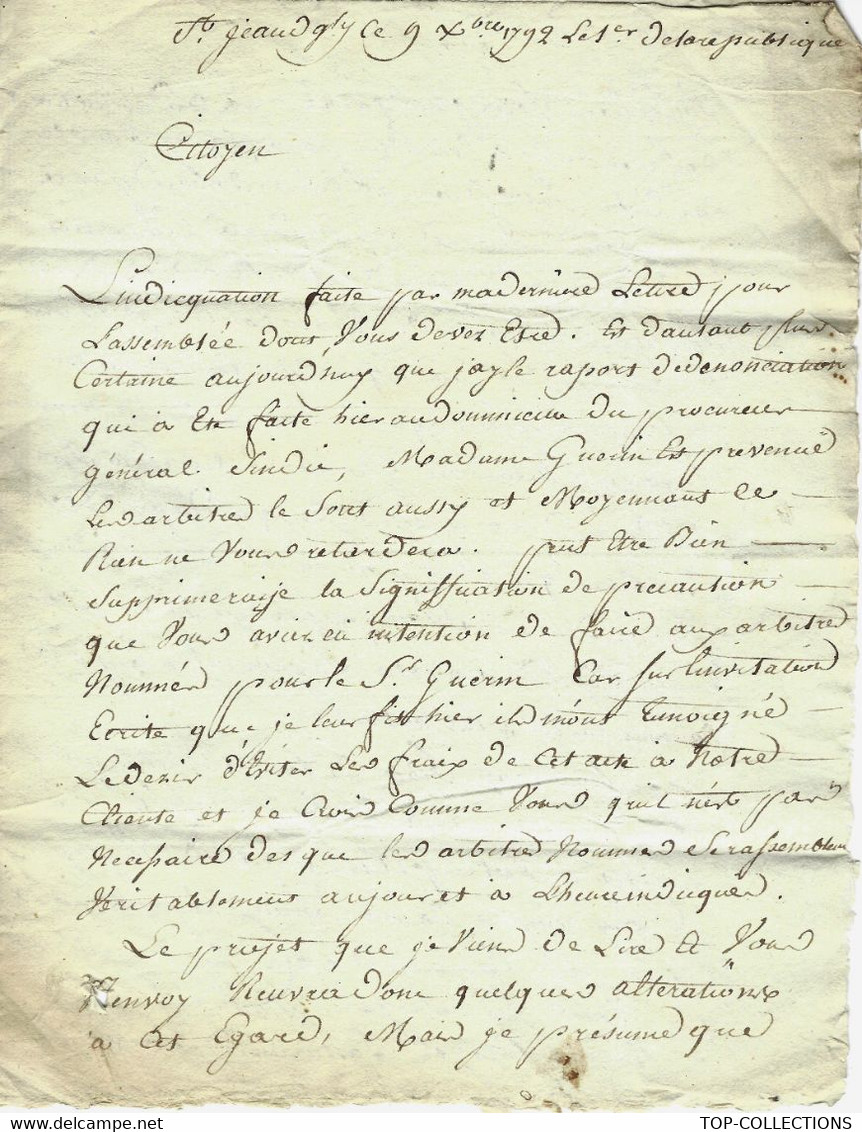 St jeandgly Ce 9 Xbre 1792 Le 1er dela republique
Citoyen
Lindicquation faite par maderniere Lettre pour
Lassemblée dont Vous devez Etre. Est dautant plus
Certaine aujourdhuy que jay le raport dedenonciation
qui a Eté faite hier audommicille du procureur
général Sindic, Madame Guerin Est prevenue
Les arbitres le Sont aussy et Moyennant Ce
Rien ne Vous retardera. peut Etre Bien
Supprimeraije la Signiffication de precaution
que Vous aviez eu intention de faire aux arbitres
Nommés pour le Sr. Guerin Car Sur linvitation
Ecrite que je leur fis hier ils m'ont temoigné
Le desir d'Eviter Les fraix de Cet acte à Notre
Cliente et je Crois Comme Vous qu'il n'est pas
Necessaire des que les arbitres Nommés Se rassemblent
Veritablement au jour et à Lheure indicquée.
Le projet que je Viens de Lire Et Vous
Renvoy Recevra donc quelques altérations
a Cet Egard, Mais je présume que
TOP-COLLECTIONS